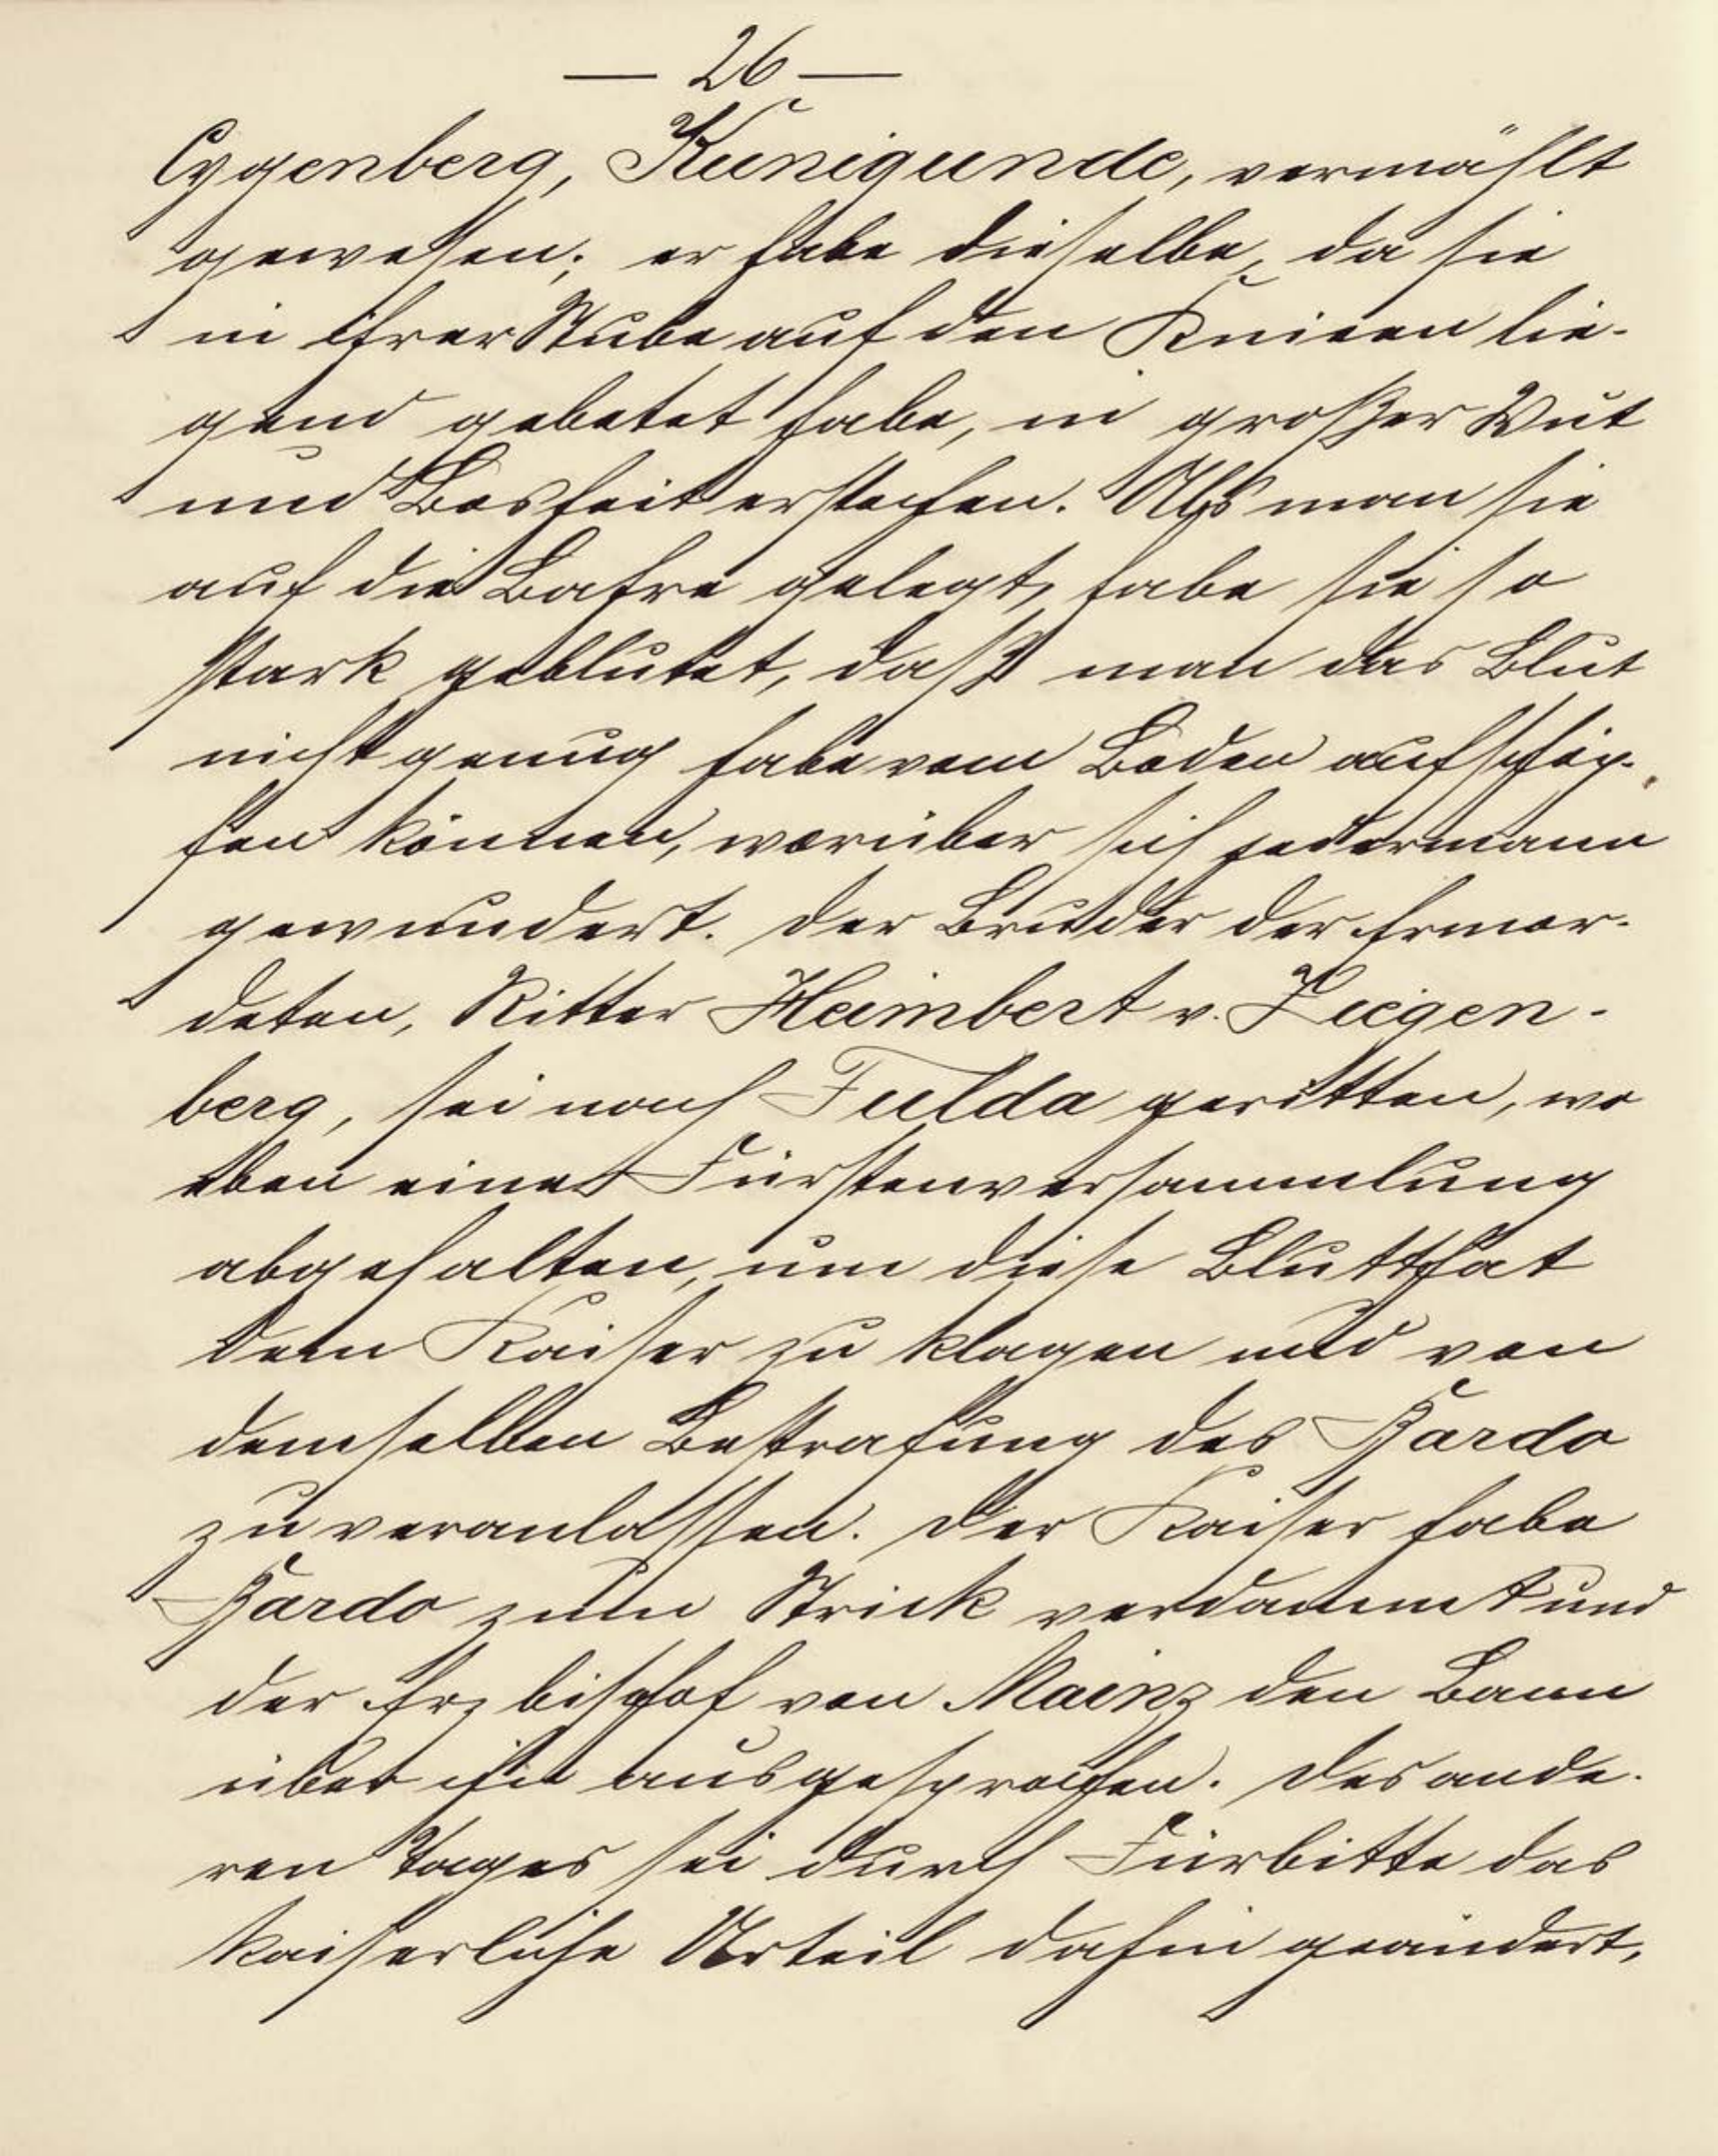 — 26 —
Cygenberg, Kunigunde, vermählt
gewesen; er habe dieselbe, da sie
in ihrer Stube auf den Knieen lie-
gend gebetet habe, in großer Wut
und Bosheit erstochen. Als man sie
auf die Bahre gelegt, habe sie so
stark geblutet, daß man das Blut
nicht genug habe vom Boden aufschöp-
fen können, worüber sich jedermann
gewundert. Der Bruder der Ermor-
deten, Ritter Heimbert v. Ziegen-
berg, sei nach Fulda geritten, wo
eben eine Fürstenversammlung
abgehalten, um diese Blutthat
dem Kaiser zu klagen und von
demselben Bestrafung des Bardo
zu veranlassen. Der Kaiser habe
Bardo zum Strick verdammt und
der Erzbischof von Mainz den Bann
über ihn ausgesprochen. Des ande-
ren Tages sei durch Fürbitte das
kaiserliche Urteil dahin geändert,